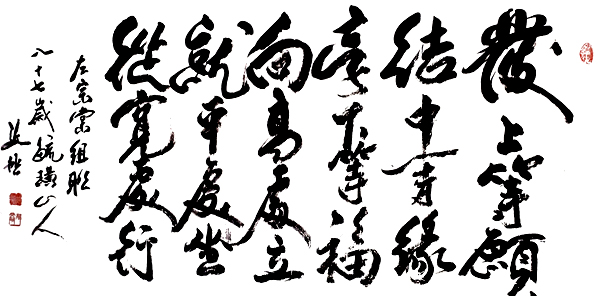 發上等願
結中等緣
享下等福
向高處立
就平處坐
從寬處行
左宗棠组联
八十七歲毓璜山人